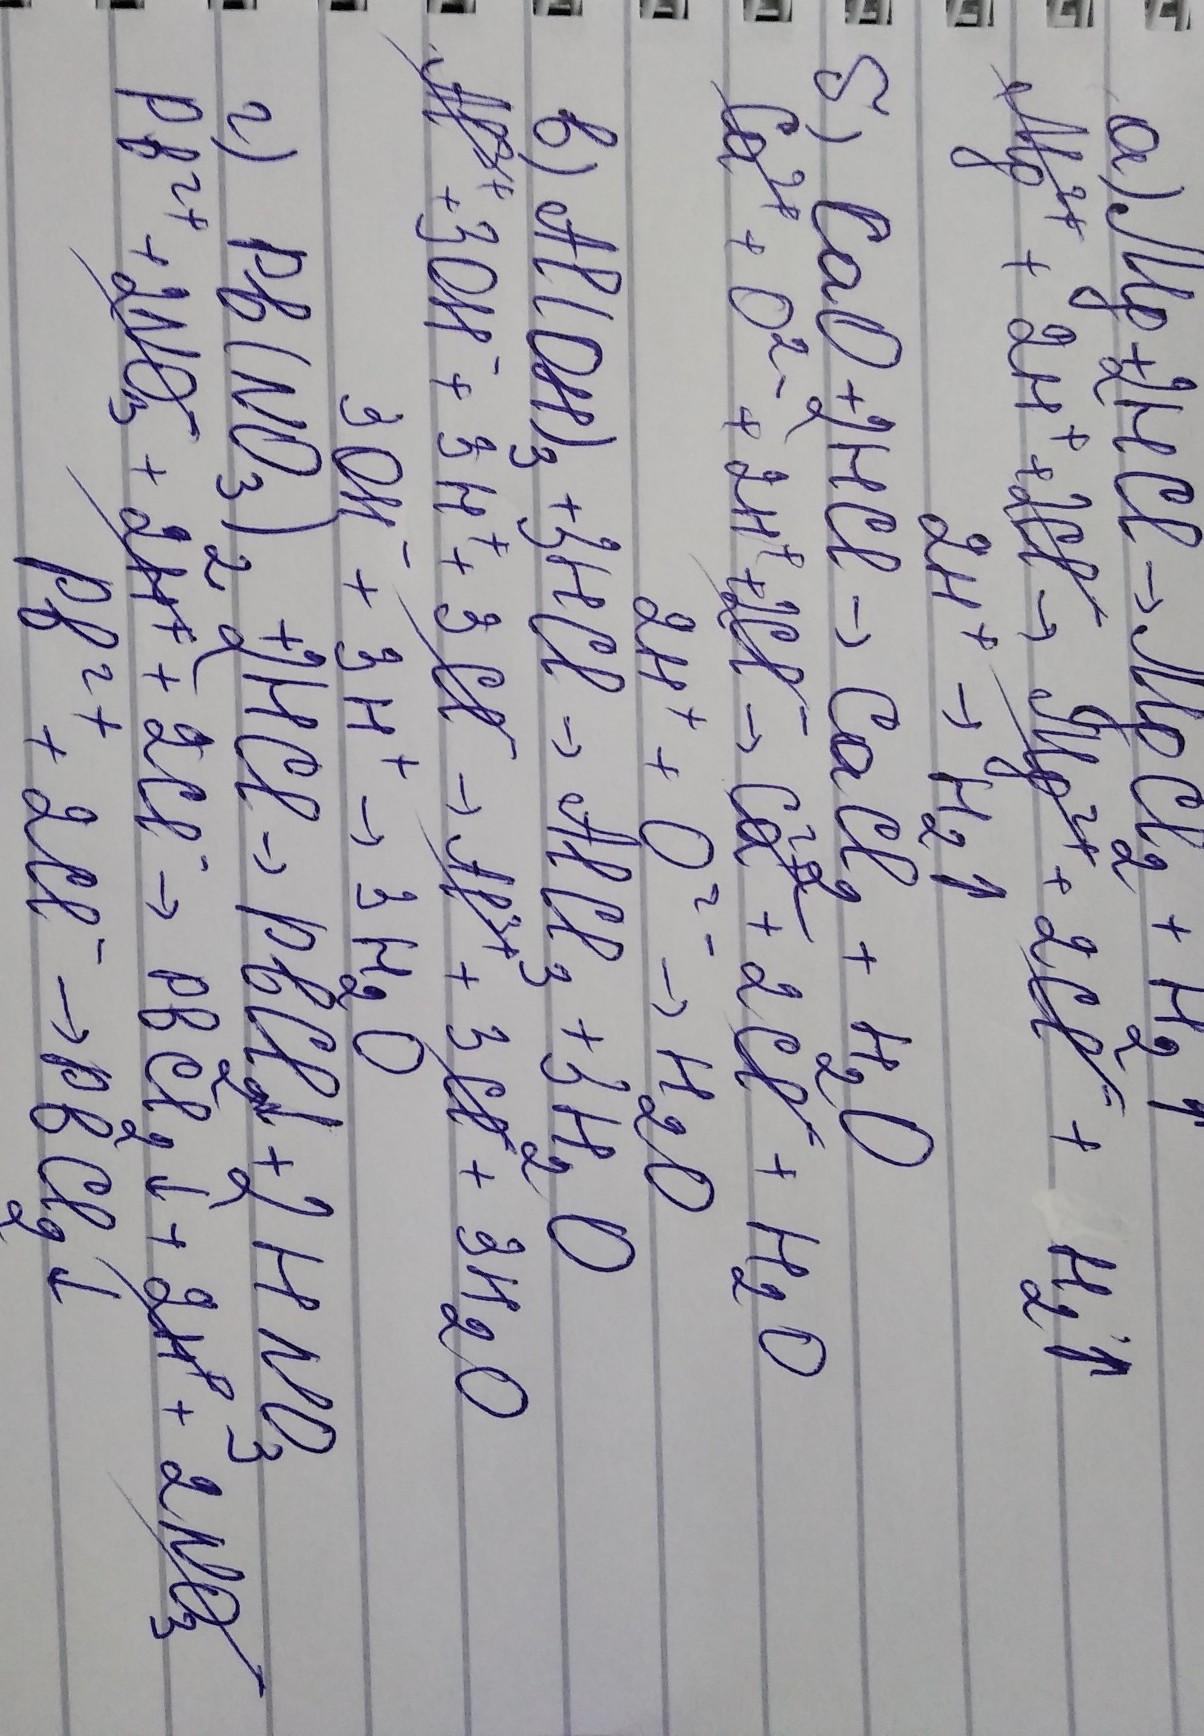 а) Mg + 2HCl → MgCl₂ + H₂↑
Mg²⁺ + 2H⁺ + 2Cl⁻ → Mg²⁺ + 2Cl⁻ + H₂↑
2H⁺ → H₂↑
б) CaO + 2HCl → CaCl₂ + H₂O
Ca²⁺ + O²⁻ + 2H⁺ + 2Cl⁻ → Ca²⁺ + 2Cl⁻ + H₂O
2H⁺ + O²⁻ → H₂O
в) Al(OH)₃ + 3HCl → AlCl₃ + 3H₂O
Al³⁺ + 3OH⁻ + 3H⁺ + 3Cl⁻ → Al³⁺ + 3Cl⁻ + 3H₂O
3OH⁻ + 3H⁺ → 3H₂O
г) Pb(NO₃)₂ + 2HCl → PbCl₂↓ + 2HNO₃
Pb²⁺ + 2NO₃⁻ + 2H⁺ + 2Cl⁻ → PbCl₂↓ + 2H⁺ + 2NO₃⁻
Pb²⁺ + 2Cl⁻ → PbCl₂↓